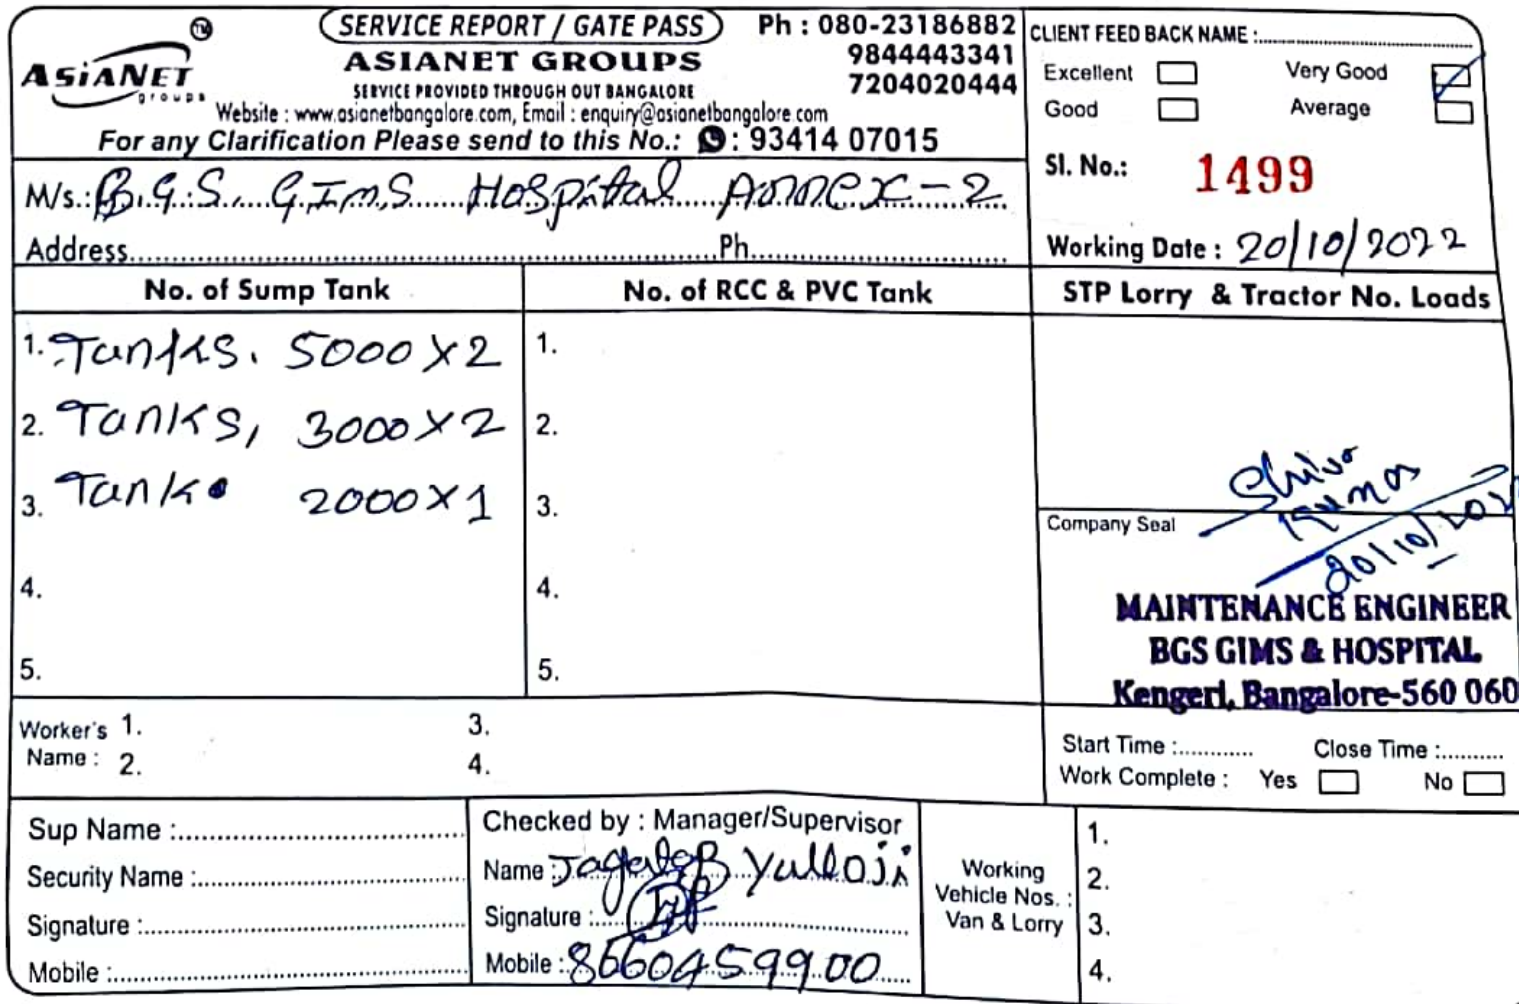 TM
ASiANET
groups
SERVICE REPORT / GATE PASS
ASIANET GROUPS
SERVICE PROVIDED THROUGH OUT BANGALORE
Ph : 080-23186882
9844443341
7204020444
Website : www.asianetbangalore.com, Email : enquiry@asianetbangalore.com
For any Clarification Please send to this No.: : 93414 07015
CLIENT FEED BACK NAME :
Excellent Very Good
Good Average
Sl. No.: 1499
M/s.: B.G.S. G.I.M.S Hospital Annex-2
Address Ph
Working Date : 20/10/2022
No. of Sump Tank No. of RCC & PVC Tank STP Lorry & Tractor No. Loads
1. Tanks. 5000 X 2 1.
2. Tanks, 3000 X 2 2.
3. Tank 2000 X 1 3.
4. 4.
5. 5.
Shiva
Kumar
20/10/202
Company Seal
MAINTENANCE ENGINEER
BGS GIMS & HOSPITAL
Kengeri, Bangalore-560 060
Worker's 1. 3.
Name : 2. 4.
Start Time : Close Time :
Work Complete : Yes No
Sup Name :
Security Name :
Signature :
Mobile :
Checked by : Manager/Supervisor
Name : Yalloji
Signature :
Mobile : 8660459900
Working
Vehicle Nos. :
Van & Lorry
1.
2.
3.
4.